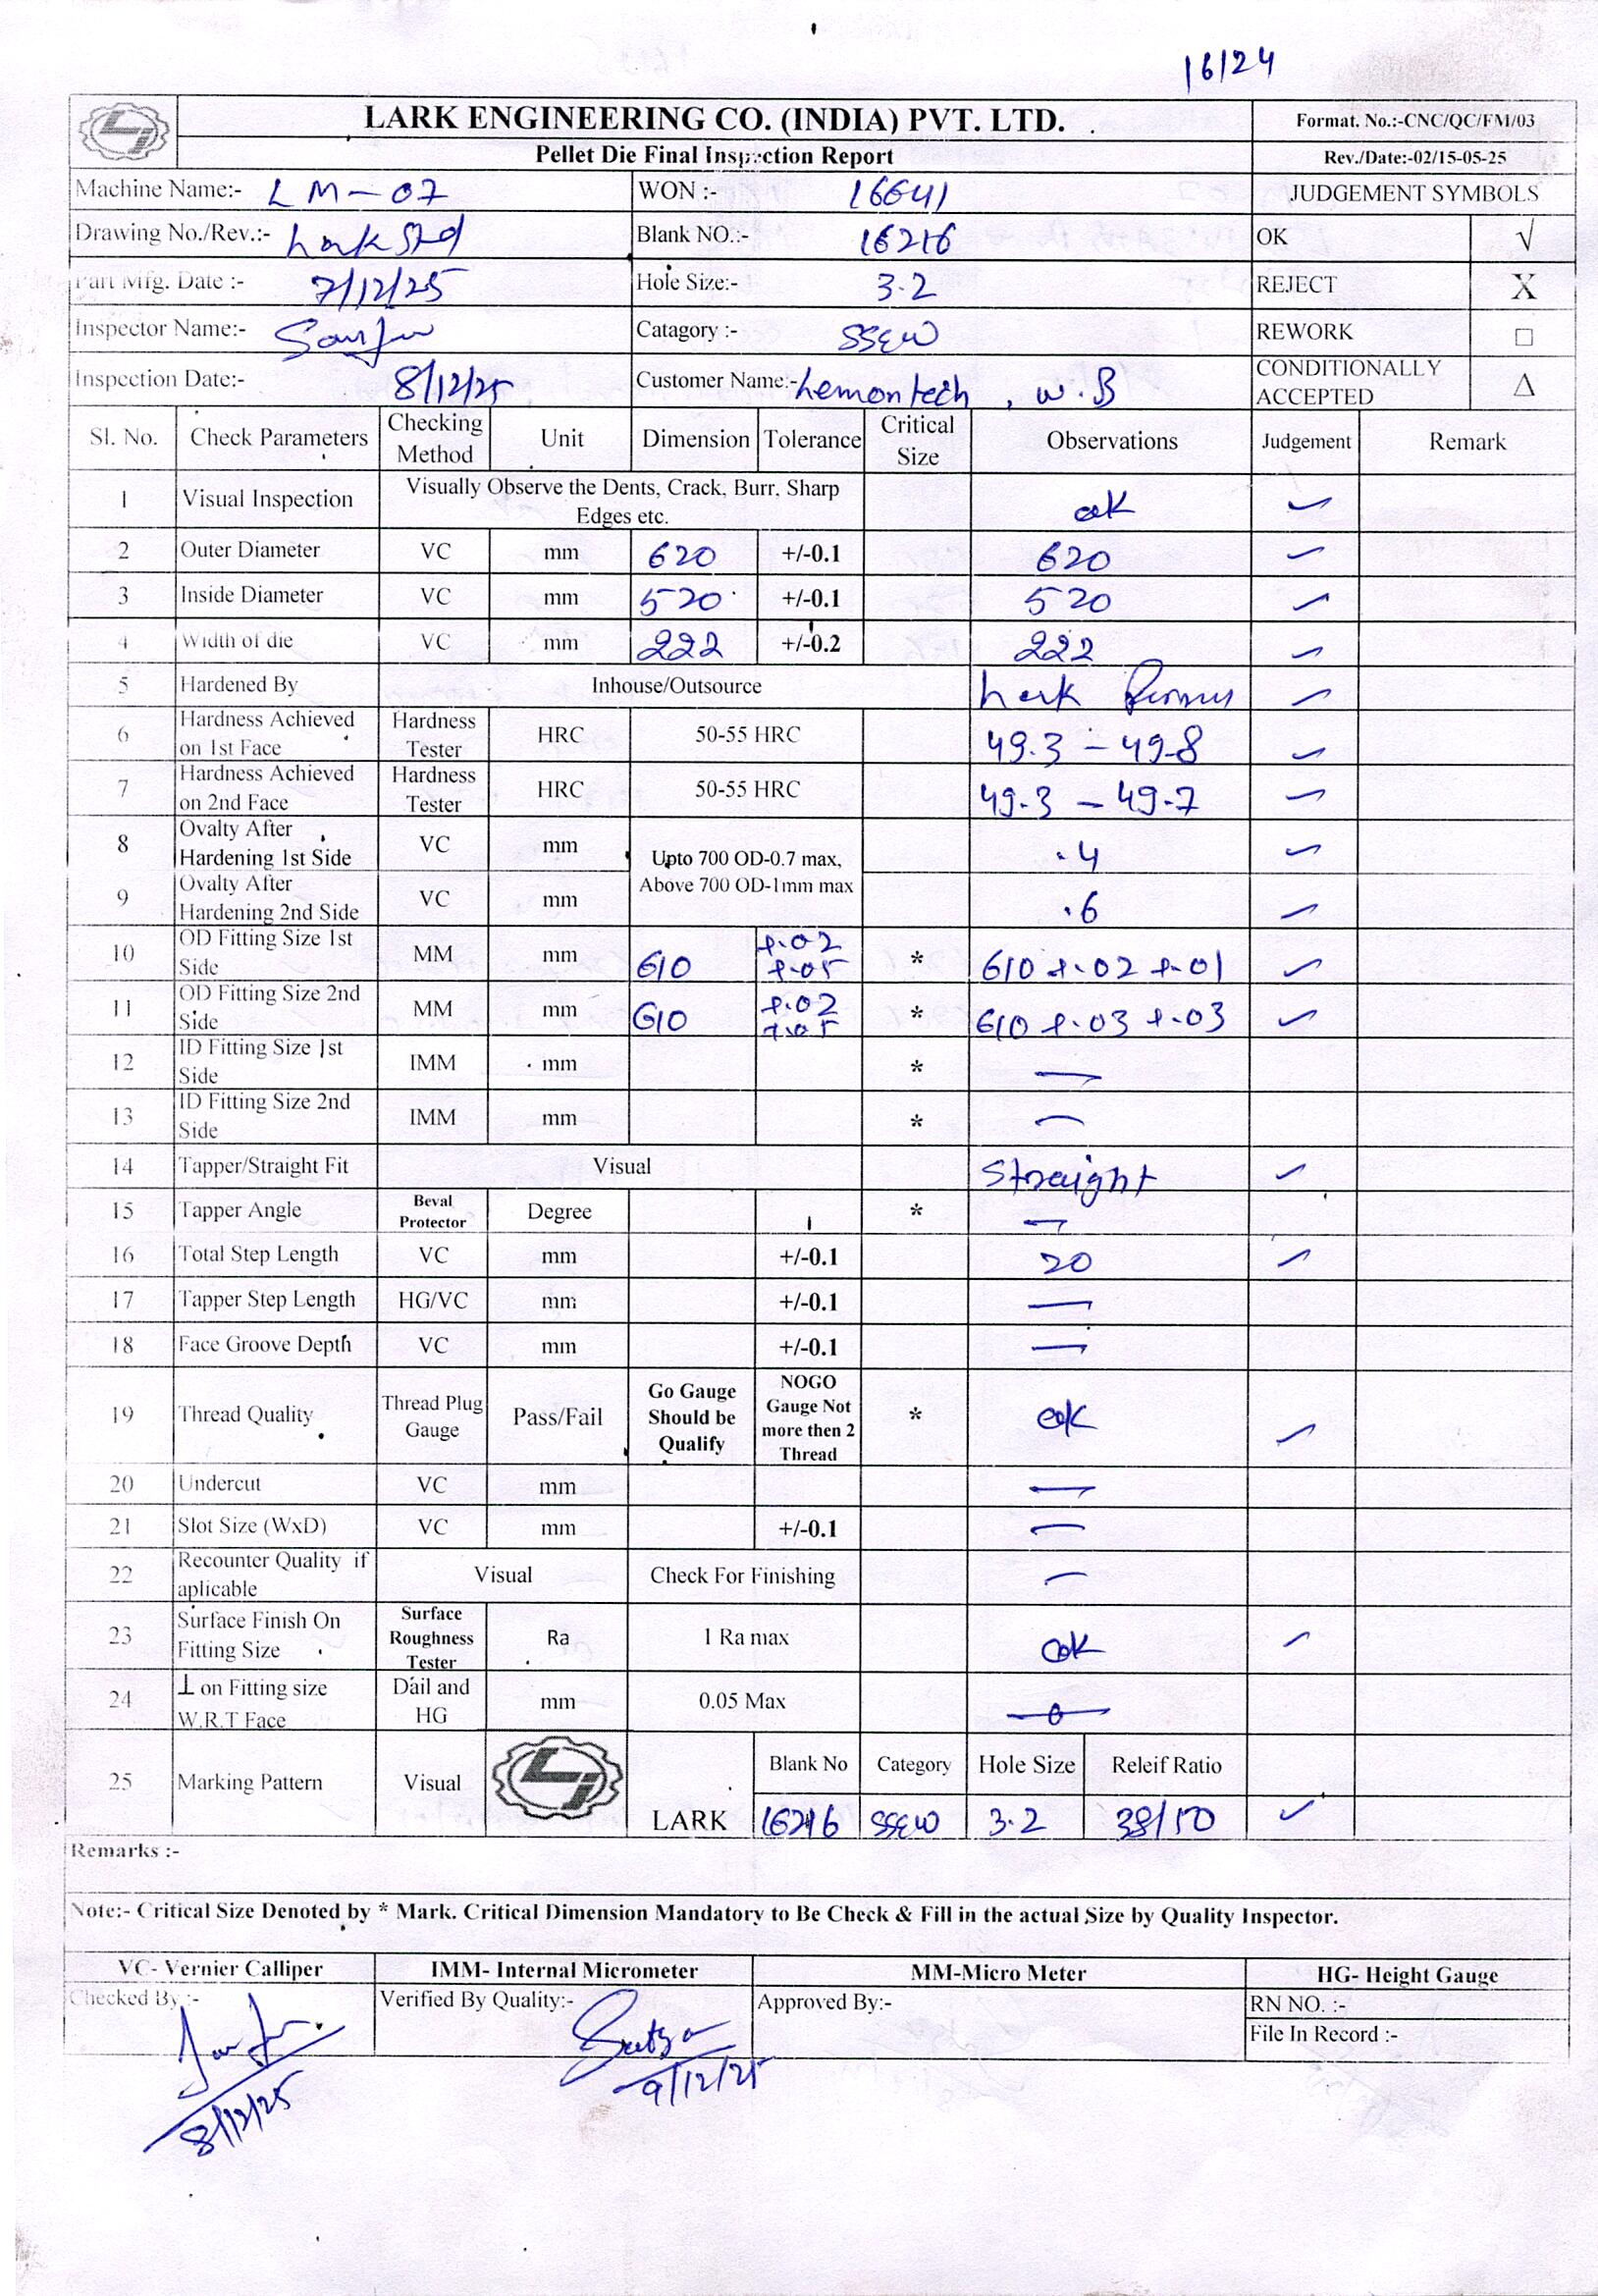 16124
LARK ENGINEERING CO. (INDIA) PVT. LTD.
Format. No.:-CNC/QC/FM/03
Pellet Die Final Inspection Report
Rev./Date:-02/15-05-25
Machine Name:- LM-07 WON :- 16641 JUDGEMENT SYMBOLS
Drawing No./Rev.:- Lark Std Blank NO.:- 16216 OK √
Part Mfg. Date :- 7/12/25 Hole Size:- 3.2 REJECT X
Inspector Name:- Catagory :- SSEW REWORK □
Inspection Date:- 8/12/25 Customer Name:- Lemontech, W.B CONDITIONALLY ACCEPTED Δ
Sl. No. Check Parameters Checking Method Unit Dimension Tolerance Critical Size Observations Judgement Remark
1 Visual Inspection Visually Observe the Dents, Crack, Burr, Sharp Edges etc. ok ✓
2 Outer Diameter VC mm 620 +/-0.1 620 ✓
3 Inside Diameter VC mm 520 +/-0.1 520 ✓
4 Width of die VC mm 222 +/-0.2 222 ✓
5 Hardened By Inhouse/Outsource Lark ✓
6 Hardness Achieved on 1st Face Hardness Tester HRC 50-55 HRC 49.3 - 49.8 ✓
7 Hardness Achieved on 2nd Face Hardness Tester HRC 50-55 HRC 49.3 - 49.7 ✓
8 Ovalty After Hardening 1st Side VC mm Upto 700 OD-0.7 max, Above 700 OD-1mm max .4 ✓
9 Ovalty After Hardening 2nd Side VC mm .6 ✓
10 OD Fitting Size 1st Side MM mm 610 +.02 +.05 * 610 +.02 +.01 ✓
11 OD Fitting Size 2nd Side MM mm 610 +.02 +.05 * 610 +.03 +.03 ✓
12 ID Fitting Size 1st Side IMM mm * —
13 ID Fitting Size 2nd Side IMM mm * —
14 Tapper/Straight Fit Visual Straight ✓
15 Tapper Angle Beval Protector Degree * —
16 Total Step Length VC mm +/-0.1 20 ✓
17 Tapper Step Length HG/VC mm +/-0.1 —
18 Face Groove Depth VC mm +/-0.1 —
19 Thread Quality Thread Plug Gauge Pass/Fail Go Gauge Should be Qualify NOGO Gauge Not more then 2 Thread * ok ✓
20 Undercut VC mm —
21 Slot Size (WxD) VC mm +/-0.1 —
22 Recounter Quality if aplicable Visual Check For Finishing —
23 Surface Finish On Fitting Size Surface Roughness Tester Ra 1 Ra max ok ✓
24 ⊥ on Fitting size W.R.T Face Dail and HG mm 0.05 Max
25 Marking Pattern Visual LARK Blank No Category Hole Size Releif Ratio
16216 SSEW 3.2 38/50 ✓
Remarks :-
Note:- Critical Size Denoted by * Mark. Critical Dimension Mandatory to Be Check & Fill in the actual Size by Quality Inspector.
VC- Vernier Calliper IMM- Internal Micrometer MM-Micro Meter HG- Height Gauge
Checked By :- Verified By Quality:- Approved By:- RN NO. :-
File In Record :-
9/12/25
8/12/25